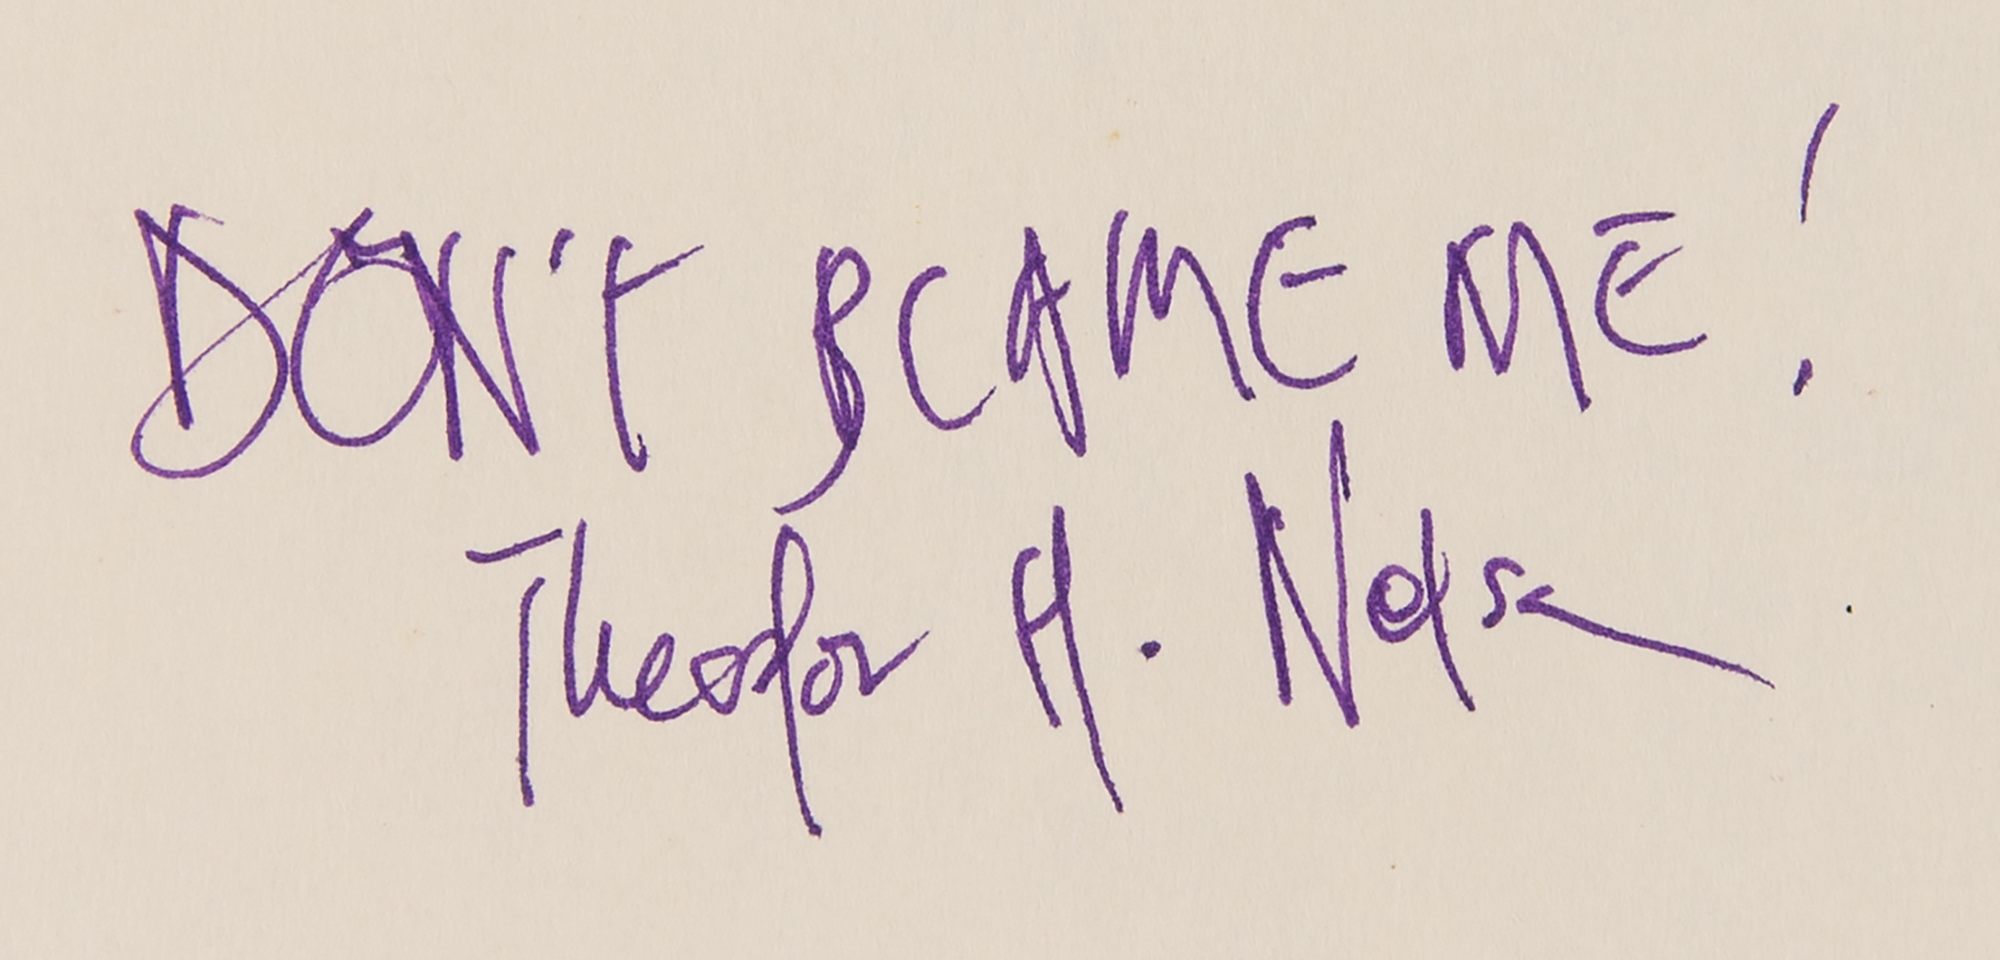 DON'T BLAME ME!
Theodor H. Nelson